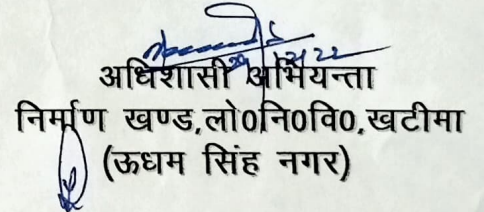 अधिशासी अभियन्ता
निर्माण खण्ड,लो0नि0वि0,खटीमा
(ऊधम सिंह नगर)